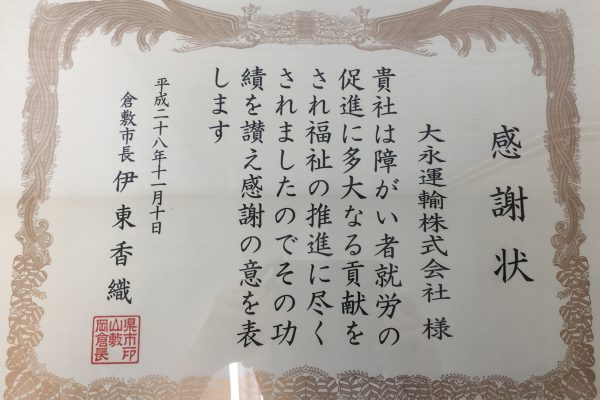 感謝状
大永運輸株式会社 様
貴社は障がい者就労の
促進に多大なる貢献を
され福祉の推進に尽く
されましたのでその功
績を讃え感謝の意を表
します
平成二十八年十一月十日
倉敷市長 伊東香織
岡山県倉敷市長印